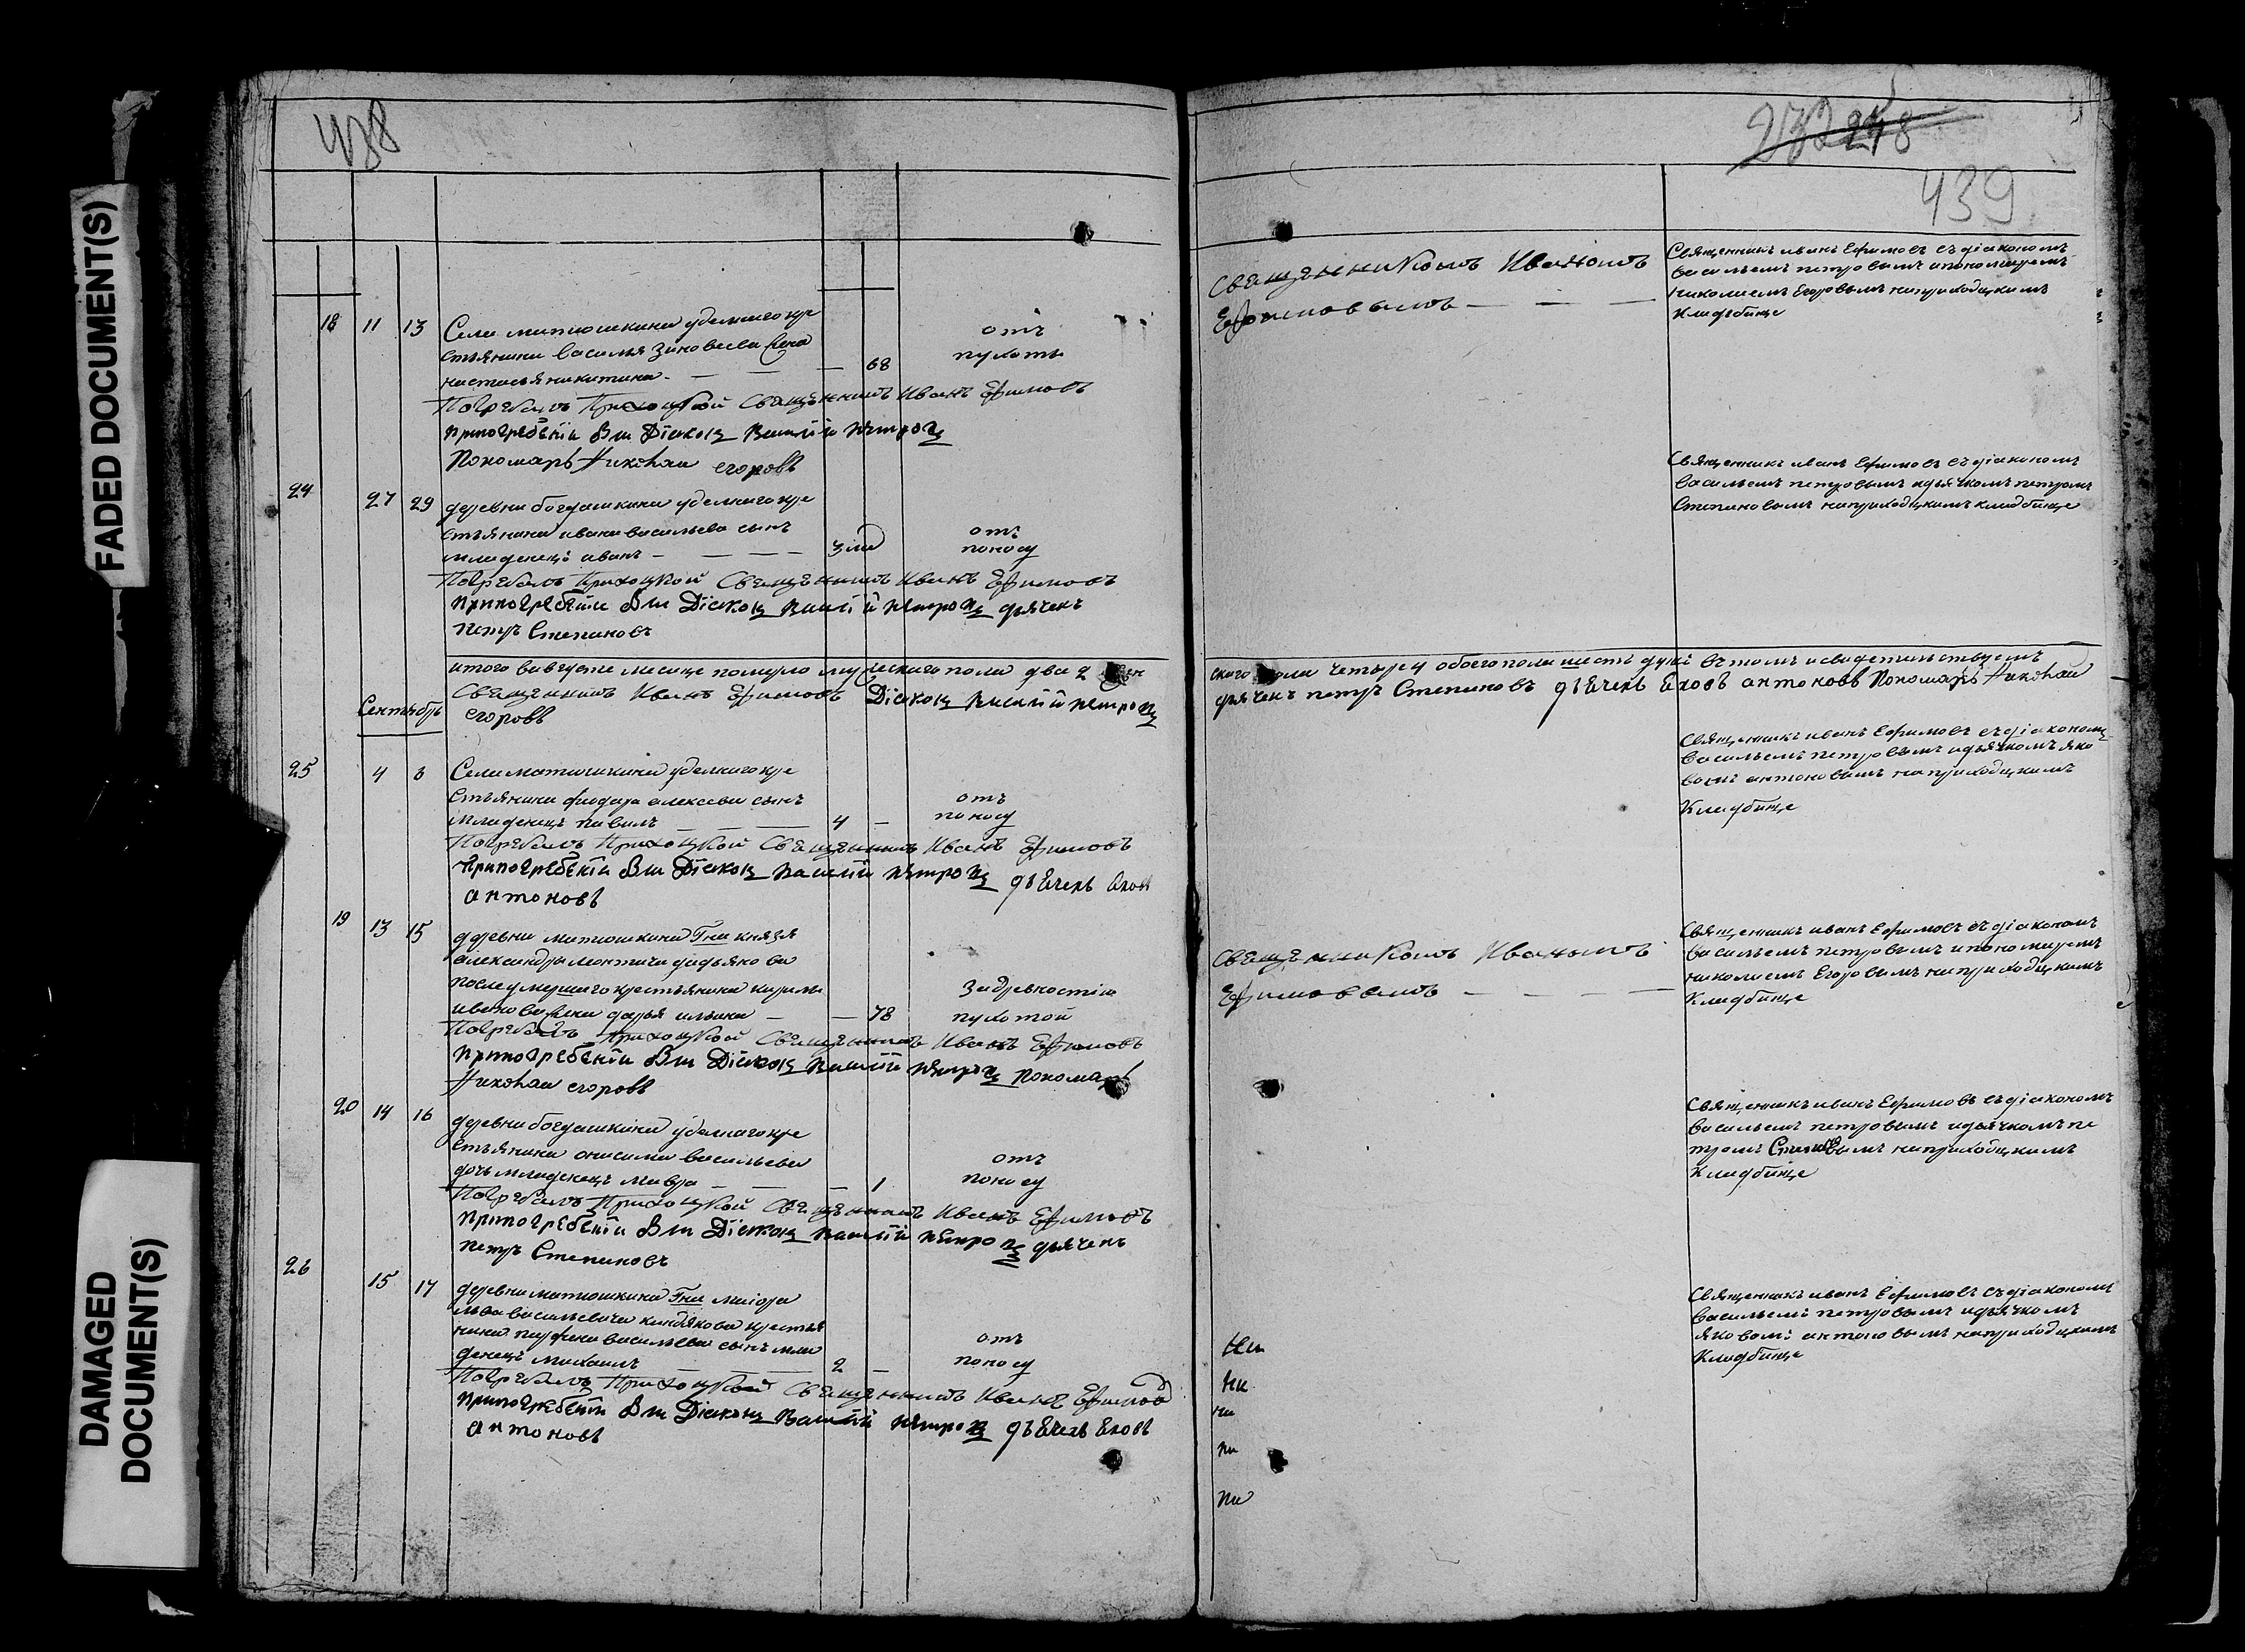 FADED DOCUMENT(S)
DAMAGED
DOCUMENT(S)
438
18 11 13 Села матюшкина уделнаго кре
стьянина василья Зиновьева жена
настасья никитина 68
отъ
пухоты
Погребалъ Приходцкой Священникъ Иванъ Ефимовъ
при погребеніи был Діаконъ Василий петровъ
Пономарь Николай егоровъ
24 27 29 деревни богдашкина уделнаго кре
стьянина ивана васильева сынъ
младенецъ иванъ
отъ
поносу
Погребалъ Приходцкой Священникъ Иванъ Ефимовъ
при погребеніи был Діаконъ Василий петровъ дьячекъ
петръ Степановъ
итого вавгусте месяце померло мужескаго пола два 2 жен
Священникъ Иванъ Ефимовъ Діаконъ Василий петровъ
егоровъ
Сентябрь
25 4 6 Села матюшкина уделнаго кре
стьянина феодора алексеева сынъ
младенецъ павелъ 4
отъ
поносу
Погребалъ Приходцкой Священникъ Иванъ Ефимовъ
при погребеніи был Діаконъ Василий петровъ дьечекъ
антоновъ
19 13 15 деревни матюшкина Гна князя
александра дадьянова
после умершаго крестьянина кирилы
иванова жена дарья ильина 78
За древностію
пухотой
Погребалъ Приходцкой Священникъ Иванъ Ефимовъ
при погребеніи был Діаконъ Василий петровъ пономарь
Николай егоровъ
20 14 16 деревни богдашкина уделнаго кре
стьянина онисима васильева
дочь младенецъ мавра 1
отъ
поносу
Погребалъ Приходцкой Священникъ Иванъ Ефимовъ
при погребеніи был Діаконъ Василий петровъ дьячекъ
петръ Степановъ
26 15 17 деревни матюшкина Гна маіора
льва васильевича киндякова крестья
нина парфена васильева сынъ мла
денецъ михаилъ 2
отъ
поносу
Погребалъ Приходцкой Священникъ Иванъ Ефимовъ
при погребеніи был Діаконъ Василий петровъ дьечекъ Ековъ
антоновъ
439
Священникомъ Иваномъ
Ефимовымъ
Священникъ иванъ Ефимовъ съ діакономъ
васильемъ петровымъ ипономаремъ
николаемъ Егоровымъ наприходцкимъ
кладбище
Священникъ иванъ Ефимовъ съ діакономъ
васильемъ петровымъ идьячкомъ петромъ
Степановымъ наприходцкимъ кладбище
скаго пола четыре 4 обоего пола шесть душъ въ томъ исвидетельствуемъ
дьячекъ петръ Степановъ дьечекъ Ековъ антоновъ Пономарь Николай
Священникъ иванъ Ефимовъ съ діакономъ
васильемъ петровымъ идьячкомъ яко
вомъ антоновымъ наприходцкимъ
Кладбище
Священникомъ Иванымъ
Ефимовымъ
Священникъ иванъ Ефимовъ съ діакономъ
васильемъ петровымъ ипономаремъ
николаемъ Егоровымъ наприходцкимъ
Кладбище
Священникъ иванъ Ефимовъ съ діакономъ
васильемъ петровымъ идьячкомъ пе
тромъ Степановымъ наприходцкимъ
Кладбище
Священникъ иванъ Ефимовъ съ діакономъ
васильемъ петровымъ идьячкомъ
яковомъ антоновымъ наприходцкимъ
Кладбище